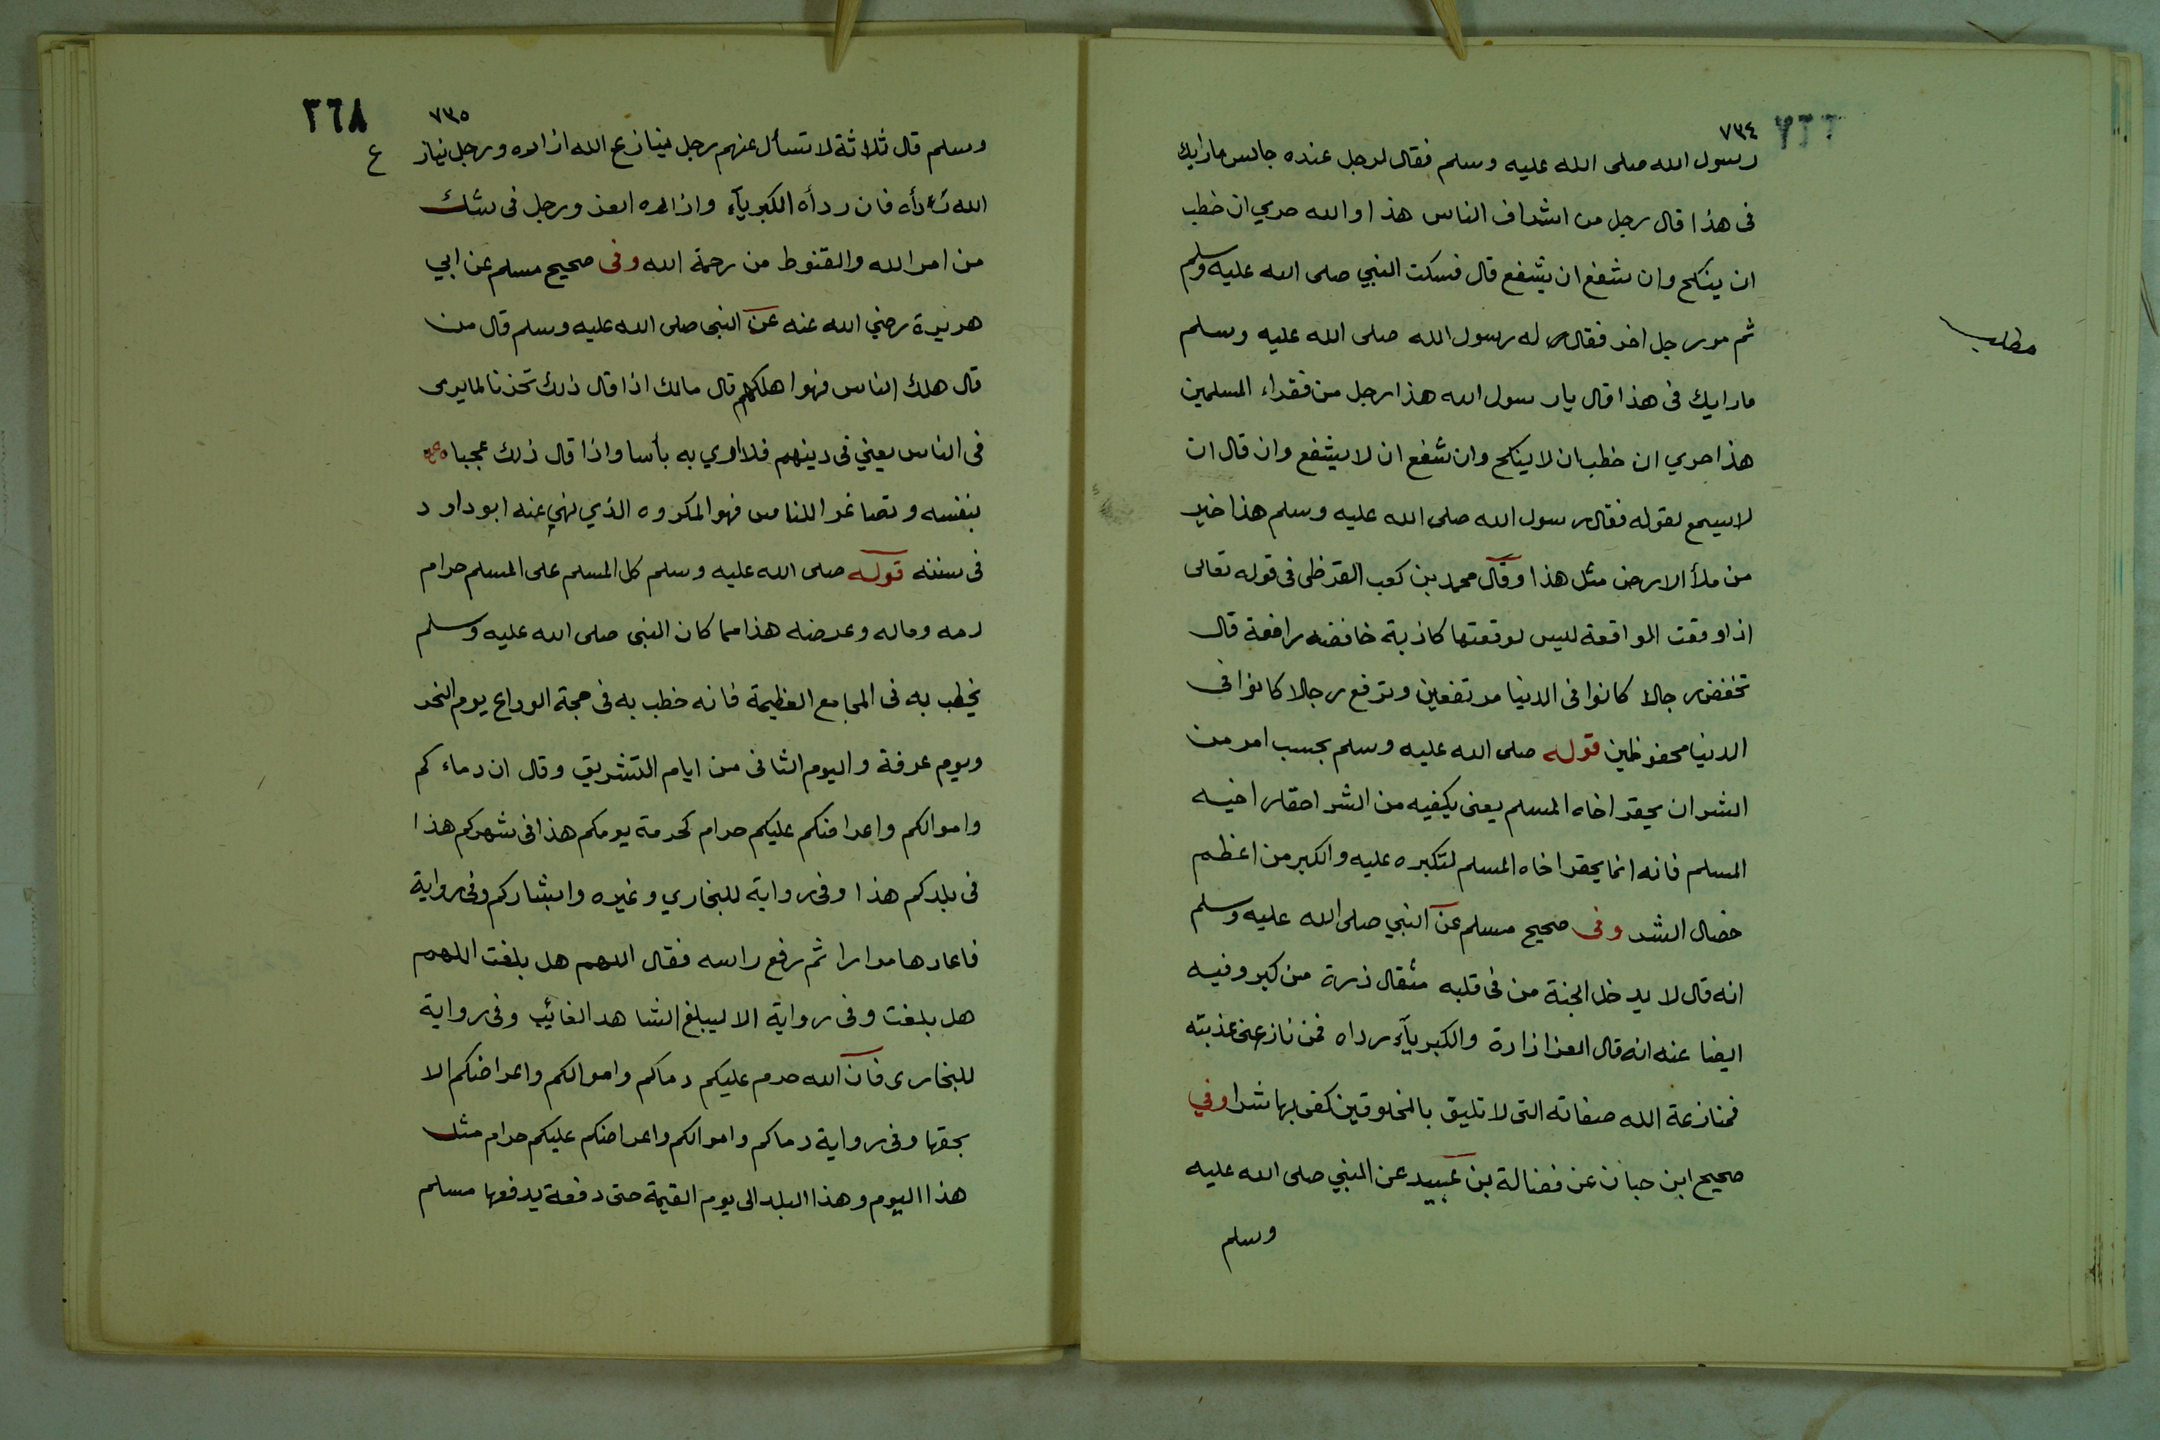 ٧٣٤
رسول الله صلى الله عليه وسلم فقال لرجل عنده جالس ما رايك
فى هذا قال رجل من اشراف الناس هذا والله حري ان خطب
ان ينكح وان شفع ان يشفع قال فسكت النبي صلى الله عليه وسلم
ثم مر رجل اخر فقال له رسول الله صلى الله عليه وسلم
مطلب
ما رايك فى هذا قال يا رسول الله هذا رجل من فقراء المسلمين
هذا حري ان خطب ان لا ينكح وان شفع ان لا يشفع وان قال ان
لا يسمع لقوله فقال رسول الله صلى الله عليه وسلم هذا خير
من ملأ الارض مثل هذا وقال محمد بن كعب القرظى فى قوله تعالى
اذا وقعت الواقعة ليس لوقعتها كاذبة خافضه رافعة قال
تخفض رجالا كانوا فى الدنيا مرتفعين وترفع رجالا كانوا فى
الدنيا محفوظين قوله صلى الله عليه وسلم بحسب امر من
الشر ان يحقر اخاه المسلم يعنى يكفيه من الشر احقار اخيه
المسلم فانه انما يحقر اخاه المسلم لتكبره عليه والكبر من اعظم
خصال الشر وفى صحيح مسلم عن النبي صلى الله عليه وسلم
انه قال لا يدخل الجنة من فى قلبه مثقال ذرة من كبر وفيه
ايضا عنه انه قال العز ازارة والكبرياء رداه فمن نازعنى عذبته
فمنازعة الله صفاته التى لا تليق بالمخلوقين كفى بها شرا وفي
صحيح ابن حبان عن فضالة بن عبيد عن النبي صلى الله عليه
وسلم
٧٣٥
٣٦٨
وسلم قال ثلاثة لا تسأل عنهم رجل ينازع الله ازاره ورجل ينازع
الله رداه فان ردأه الكبرياء وازاره العز ورجل فى شك
من امر الله والقنوط من رحمة الله وفى صحيح مسلم عن ابي
هريرة رضي الله عنه عن النبى صلى الله عليه وسلم قال من
قال هلك الناس فهوا هلكهم قال مالك اذا قال ذلك تحزنا لما يرى
فى الناس يعني فى دينهم فلا اري به بأسا واذا قال ذلك عجبا
بنفسه وتصاغرا للناس فهو المكروه الذي نهي عنه ابو داود
فى سننه قوله صلى الله عليه وسلم كل المسلم على المسلم حرام
دمه وماله وعرضه هذا مما كان النبى صلى الله عليه وسلم
يخطب به فى المجامع العظيمة فانه خطب به فى حجة الوداع يوم النحر
ويوم عرفة واليوم الثانى من ايام التشريق وقال ان دماءكم
واموالكم واعراضكم عليكم حرام كحرمة يومكم هذا فى شهركم هذا
فى بلدكم هذا وفى رواية للبخاري وغيره وابشاركم وفى رواية
فاعادها مرارا ثم رفع راسه فقال اللهم هل بلغت اللهم
هل بلغت وفى رواية الا ليبلغ الشاهد الغائب وفى رواية
للبخارى فان الله حرم عليكم دماكم واموالكم واعراضكم الا
بحقها وفى رواية دماكم واموالكم واعراضكم عليكم حرام مثل
هذا اليوم وهذا البلد الى يوم القيمة حتى دفعة يدفعها مسلم